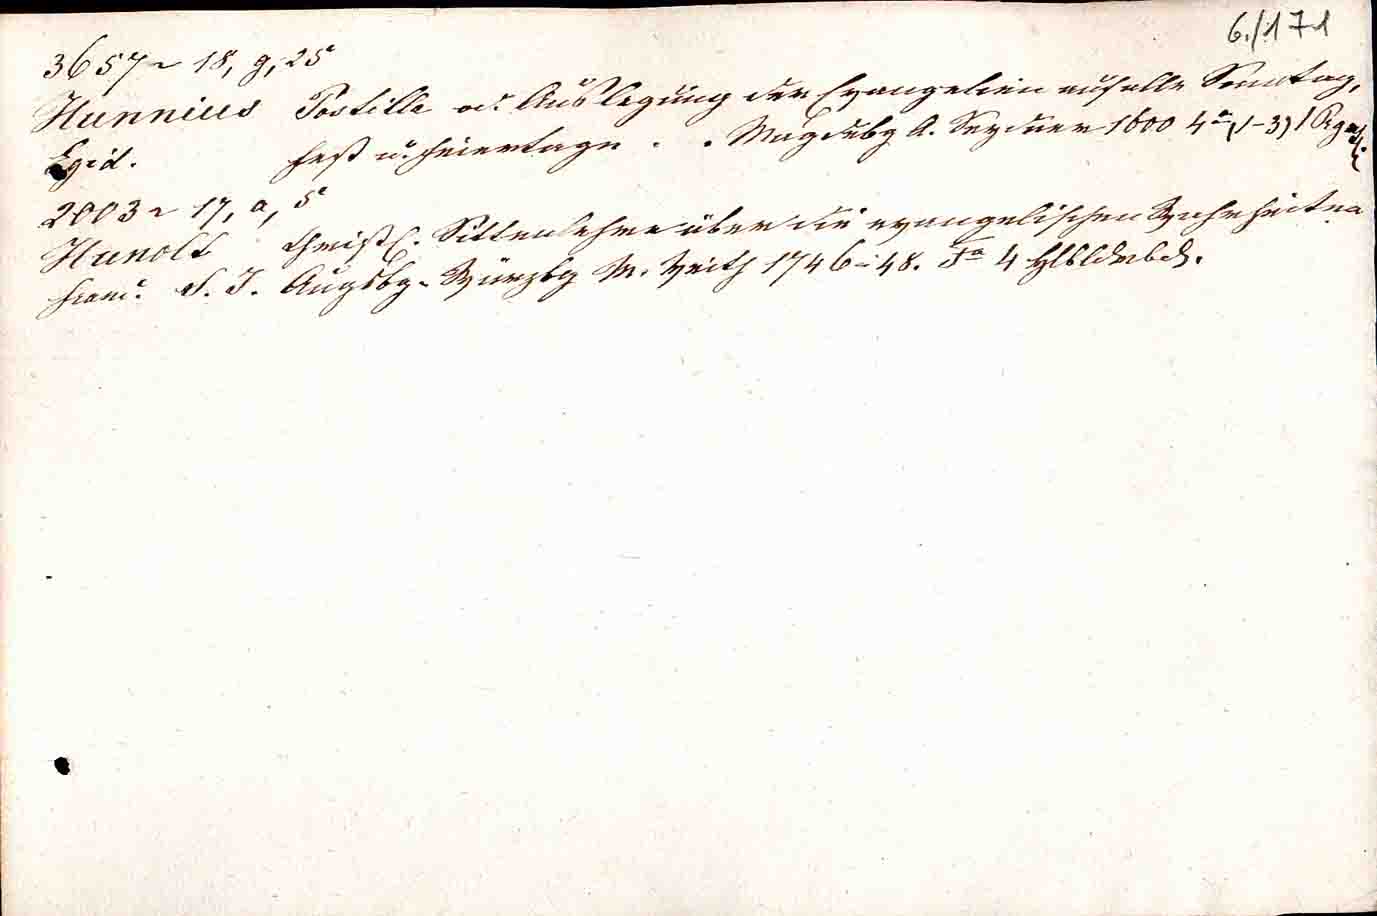 6./171
3657~ 18, g, 25
Hunnius Postille od. Auslegung der Evangelien auf alle Sonntag,
Egid. Fest u. Feiertage . . Magdebg A. 1600 4° (1-3) 1
2003~ 17, a, 5
Hunolt Christl. Sittenlehre über die evangelischen Wahrheiten
Franc. S. J. Augsbg. Würzbg M. Veith 1746-48. Fo 4 Hlbldrbd.